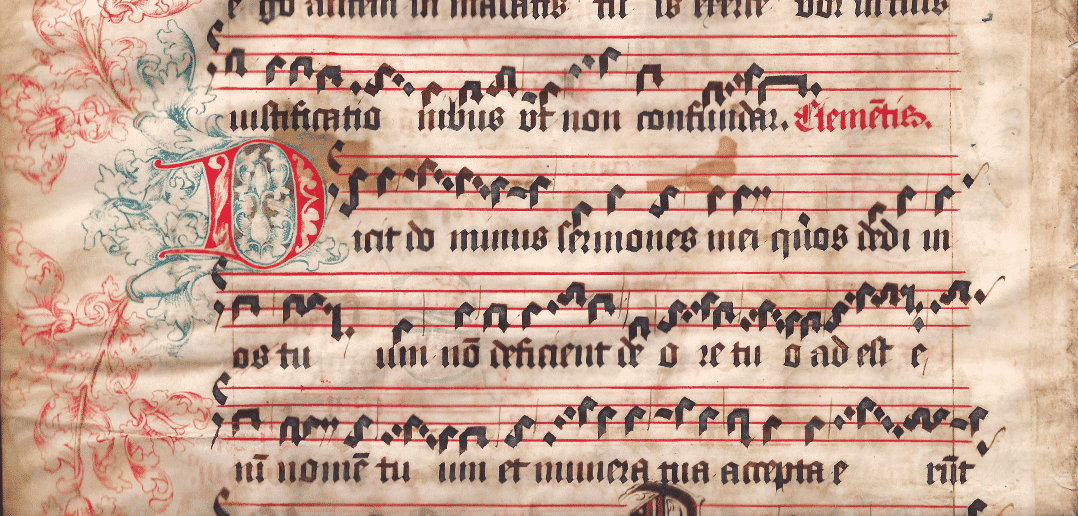 e go autem in mandatis tu is exerce bor in tuis
iustificatio nibus ut non confundar. Clemētis.
Dicit do minus sermones mei quos dedi in
os tu um nō deficient de o re tu o ad est e
nī nomē tu um et munera tua accepta e rūt